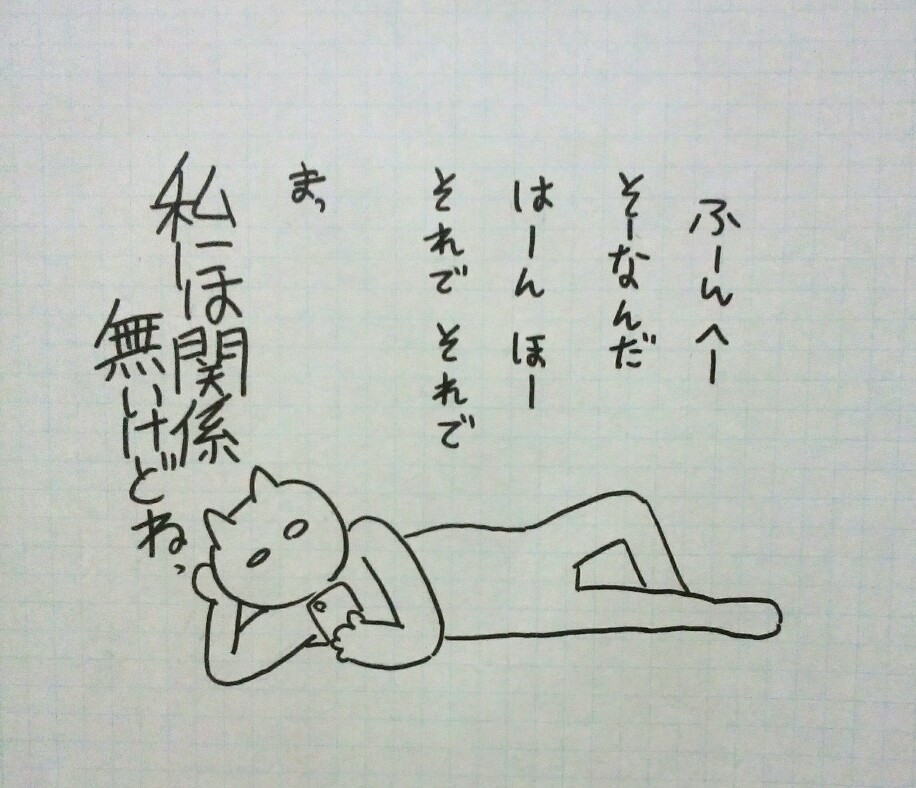 ふーんへー
そーなんだ
はーん ほー
それで それで
まっ
私には関係
無いけどねっ